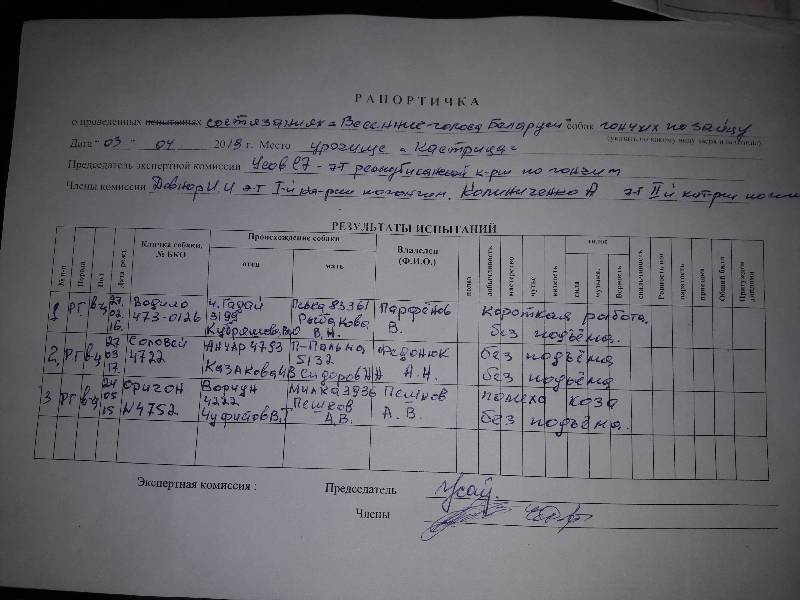 РАПОРТИЧКА
о проведенных испытаниях состязаниях "Весенние голоса Беларуси" собак гончих по зайцу
(указать по какому виду зверя или птицы)
Дата "03" 04 2018 г. Место урочище "Кастрица"
Председатель экспертной комиссии Усов - э-т республиканской к-рии по гончим
Члены комиссии Довнор И.И э-т I-й ка-рии по гончим. Калиниченко А э-т II й кат-рии по
РЕЗУЛЬТАТЫ ИСПЫТАНИЙ
№ п-п Порода Пол Дата рожд. Кличка собаки, № БКО Происхождение собаки отец мать Владелец (Ф.И.О.) полаз добычливость мастерство чутье вязкость голос сила музыка. верность паратость приездка Общий балл Присужден диплом
1 РГ вц 27.02.16. Водило 473-0126 ч. Гадай 3199 83361 Рыбакова В.Н. Парфёнов В. Короткая работа. без подъёма.
2 РГ вц 27 03 17. Соловей 4722 Анчар 4753 Казакова П-Пальма 5132 Сидоров Федонюк А.Н. без подъёма без подъёма
3 РГ вц 24 05 15 Фригон N4752 Ворчун 4222 Милка 3936 Пешков А.В. Пешков А.В. помеха коза без подъёма.
Экспертная комиссия : Председатель
Члены